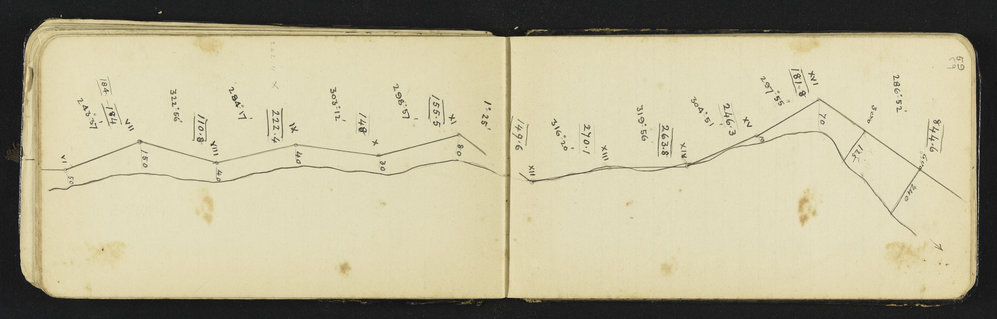 VI
50
243°57'
184
184
VII
150
322°56'
110.8
VIII
40
284°17'
222.4
IX
40
303°12'
148
X
30
298°57'
155.5
XI
80
1°25'
149.6
XII
316°20'
270.1
XIII
315°56'
263.8
XIV
304°51'
246.3
XV
297°55'
181.8
XVI
70
300
125
286°52'
844.6
600
240
59